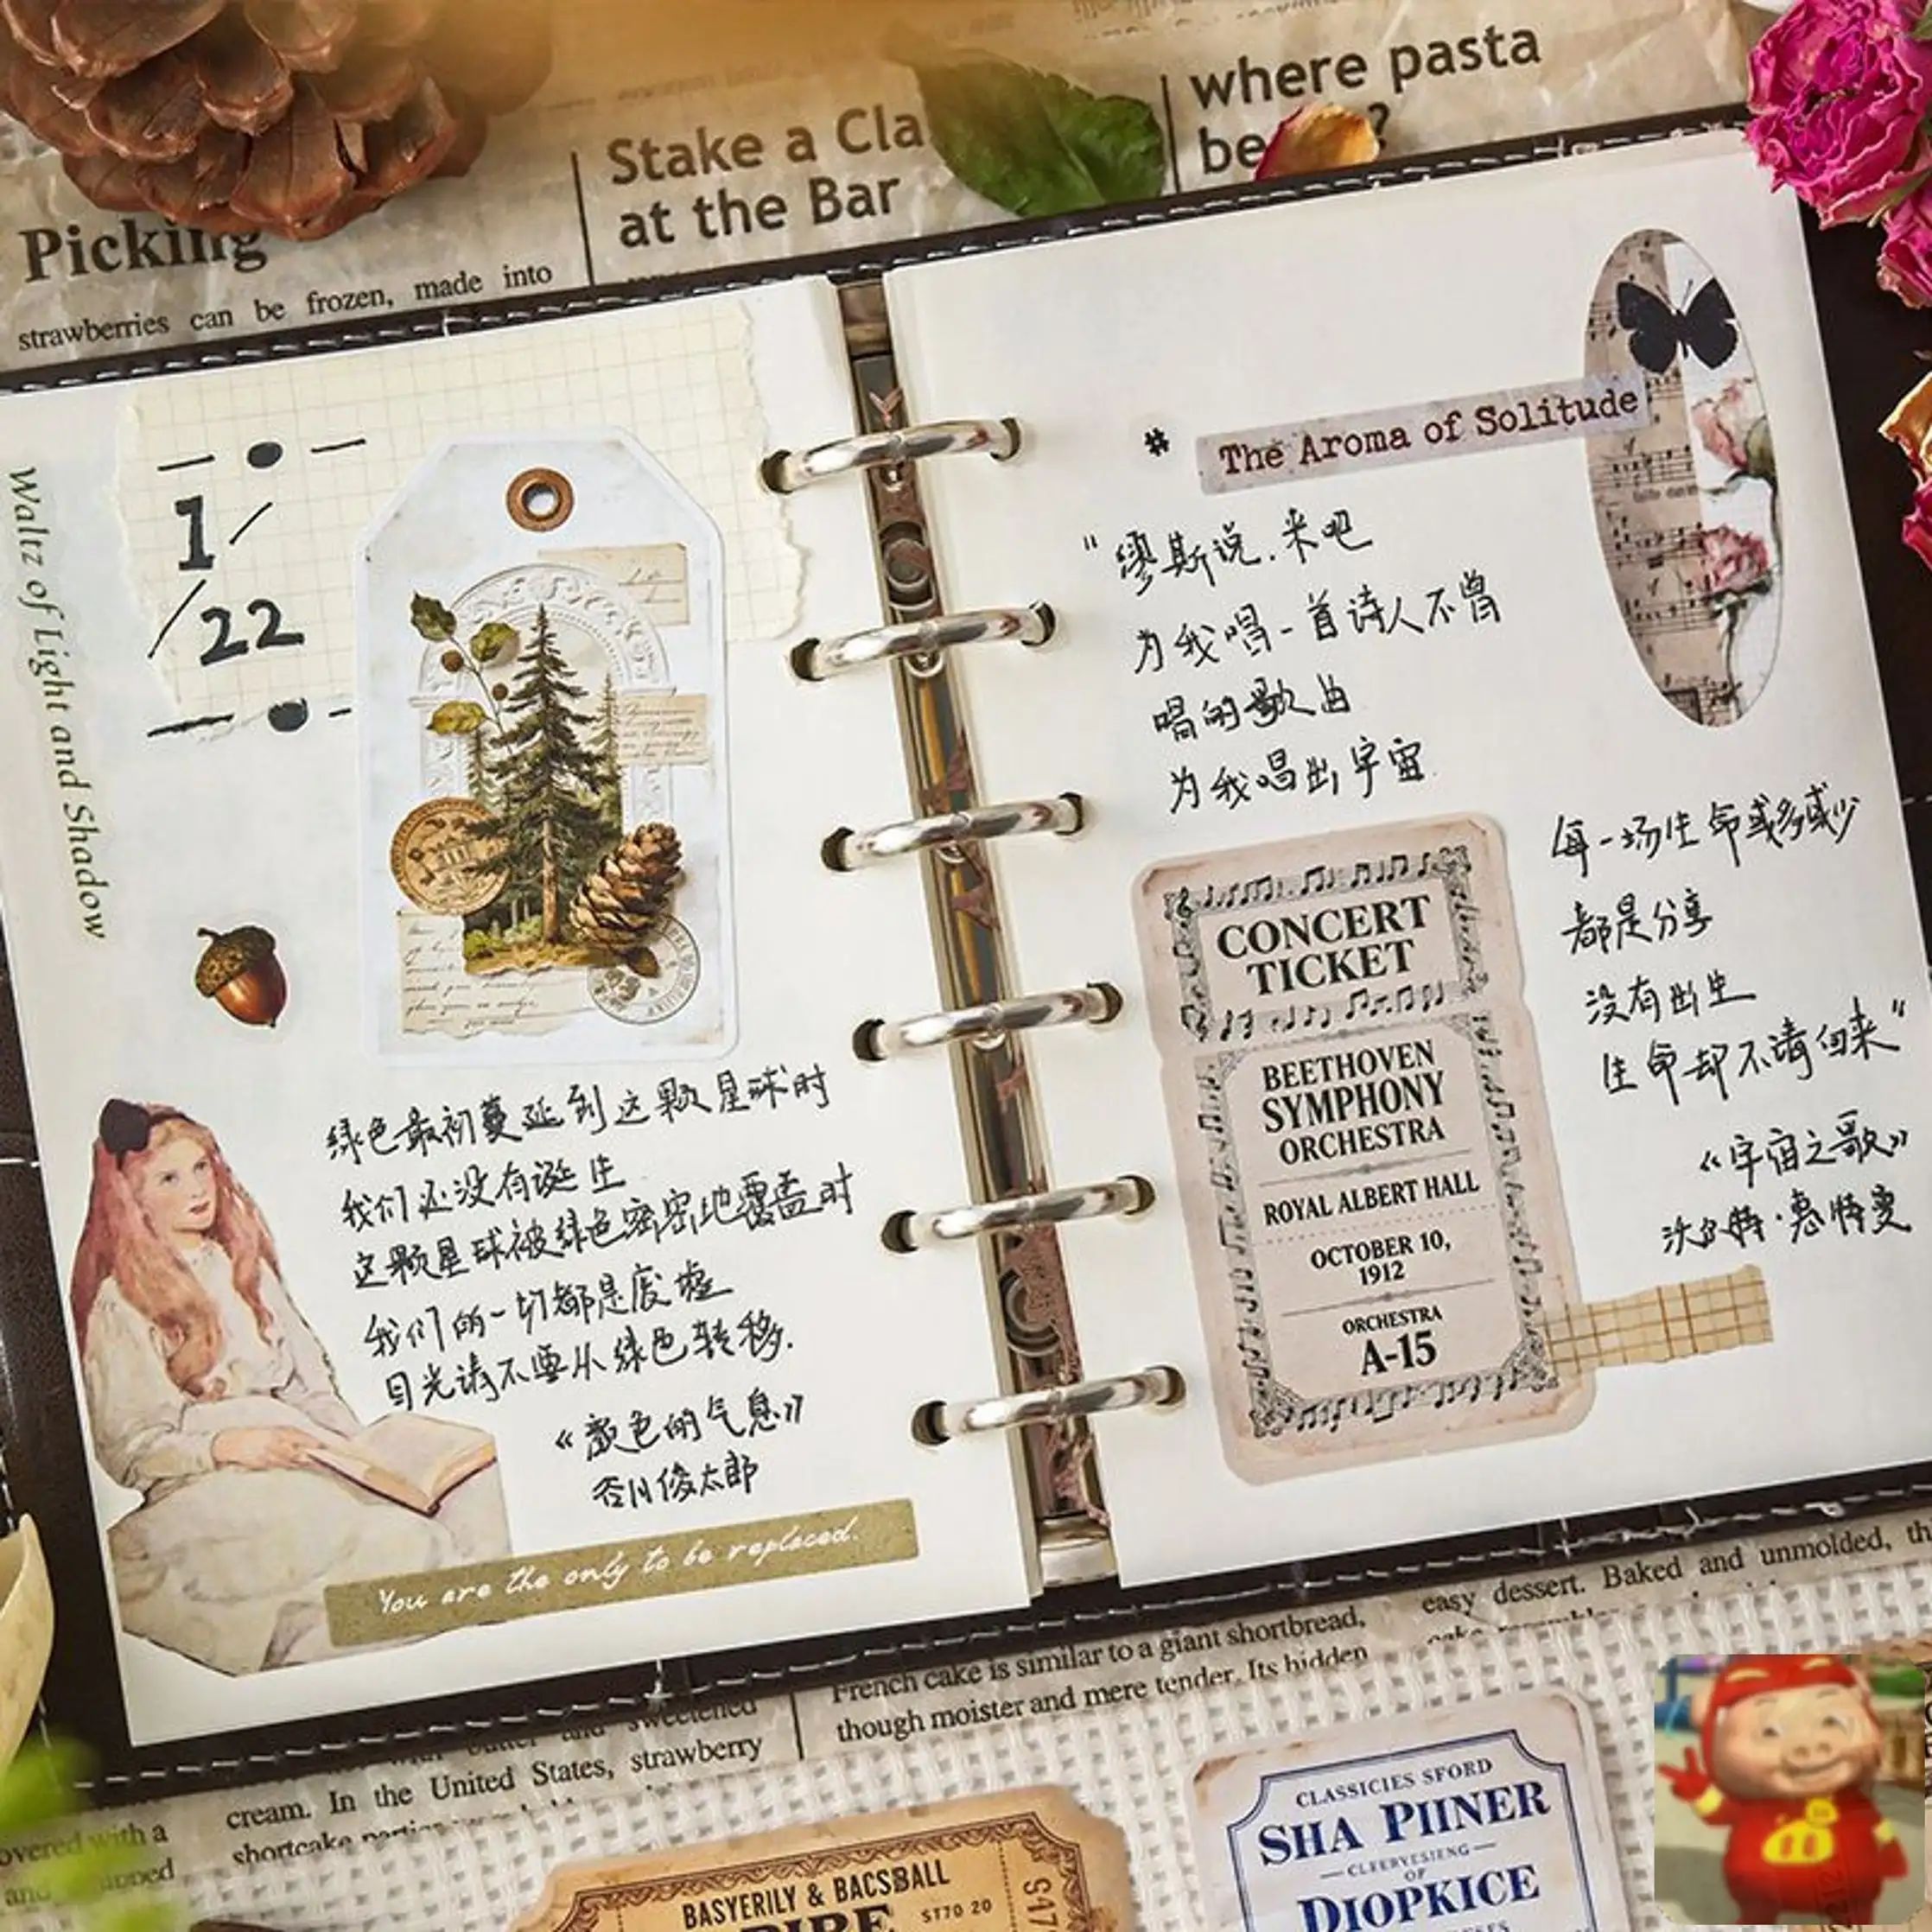 Picking
strawberries can be frozen, made into
Stake a Cla
at the Bar
where pasta
be ?
Waltz of Light and Shadow
1/
/22
绿色最初蔓延到这颗星球时
我们还没有诞生
这颗星球被绿色密密地覆盖时
我们的一切都是废墟
目光请不要从绿色转移.
《颜色的气息》
谷川俊太郎
You are the only to be replaced.
* The Aroma of Solitude
“缪斯说.来吧
为我唱一首诗人不曾
唱的歌曲
为我唱出宇宙
每一场生命或多或少
都是分享
没有出生
生命却不请自来”
《宇宙之歌》
沃尔特·惠特曼
CONCERT
TICKET
BEETHOVEN
SYMPHONY
ORCHESTRA
ROYAL ALBERT HALL
OCTOBER 10,
1912
ORCHESTRA
A-15
sweetened
cream. In the United States, strawberry
shortcake
overed with a
and
French cake is similar to a giant shortbread,
though moister and mere tender. Its hidden
easy dessert. Baked and unmolded,
BASYERILY & BACSBALL
ST70 20
CLASSICIES SFORD
SHA PIINER
CLEERVESIENG
OF
DIOPKICE